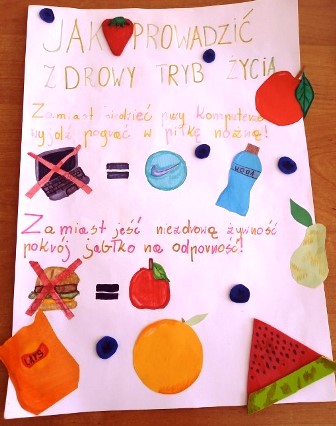 JAK PROWADZIĆ
ZDROWY TRYB ŻYCIA
Zamiast siedzieć przy komputerze
wyjdź pograć w piłkę nożną!
WODA
Zamiast jeść niezdrową żywność
pokrój jabłko na odporność!
LAYS